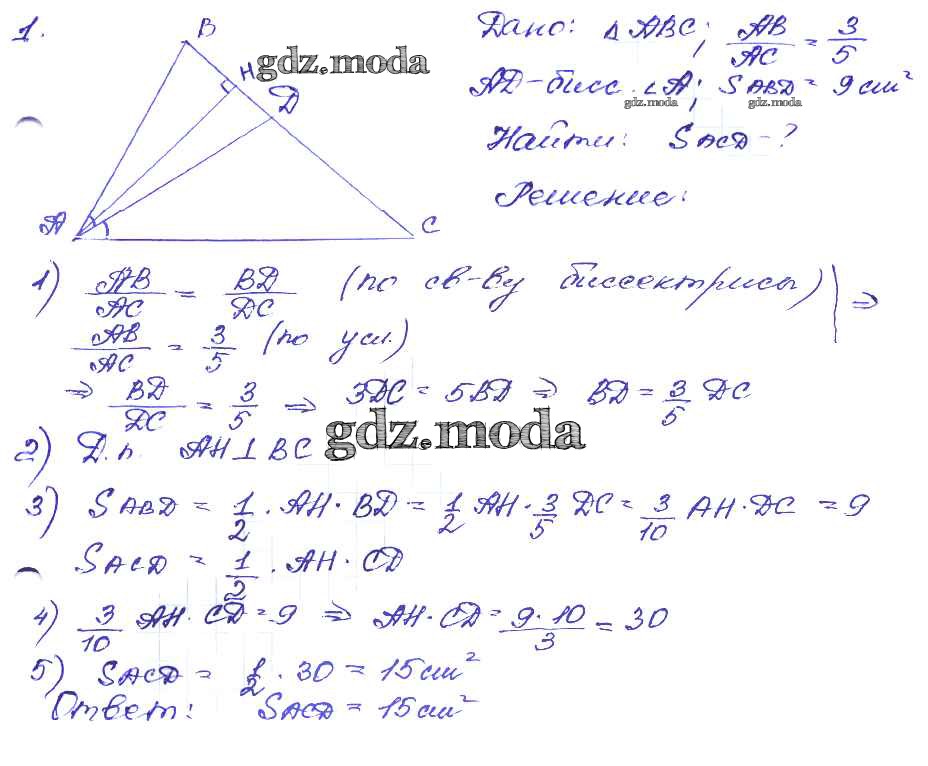 1.
B
H
D
A
C
gdz.moda
Дано: △ABC; AB/AC = 3/5
AD-бисс. ∠A; S ABD = 9 см²
gdz.moda gdz.moda
Найти: S ACD - ?
Решение:
1) AB/AC = BD/DC (по св-ву биссектрисы) | ⇒
AB/AC = 3/5 (по усл.)
⇒ BD/DC = 3/5 ⇒ 3DC = 5BD ⇒ BD = 3/5 DC
gdz.moda
2) Д.п. AH ⊥ BC
3) S ABD = 1/2 · AH · BD = 1/2 AH · 3/5 DC = 3/10 AH · DC = 9
S ACD = 1/2 · AH · CD
4) 3/10 AH · CD = 9 ⇒ AH · CD = 9 · 10/3 = 30
5) S ACD = 1/2 · 30 = 15 см²
Ответ: S ACD = 15 см²